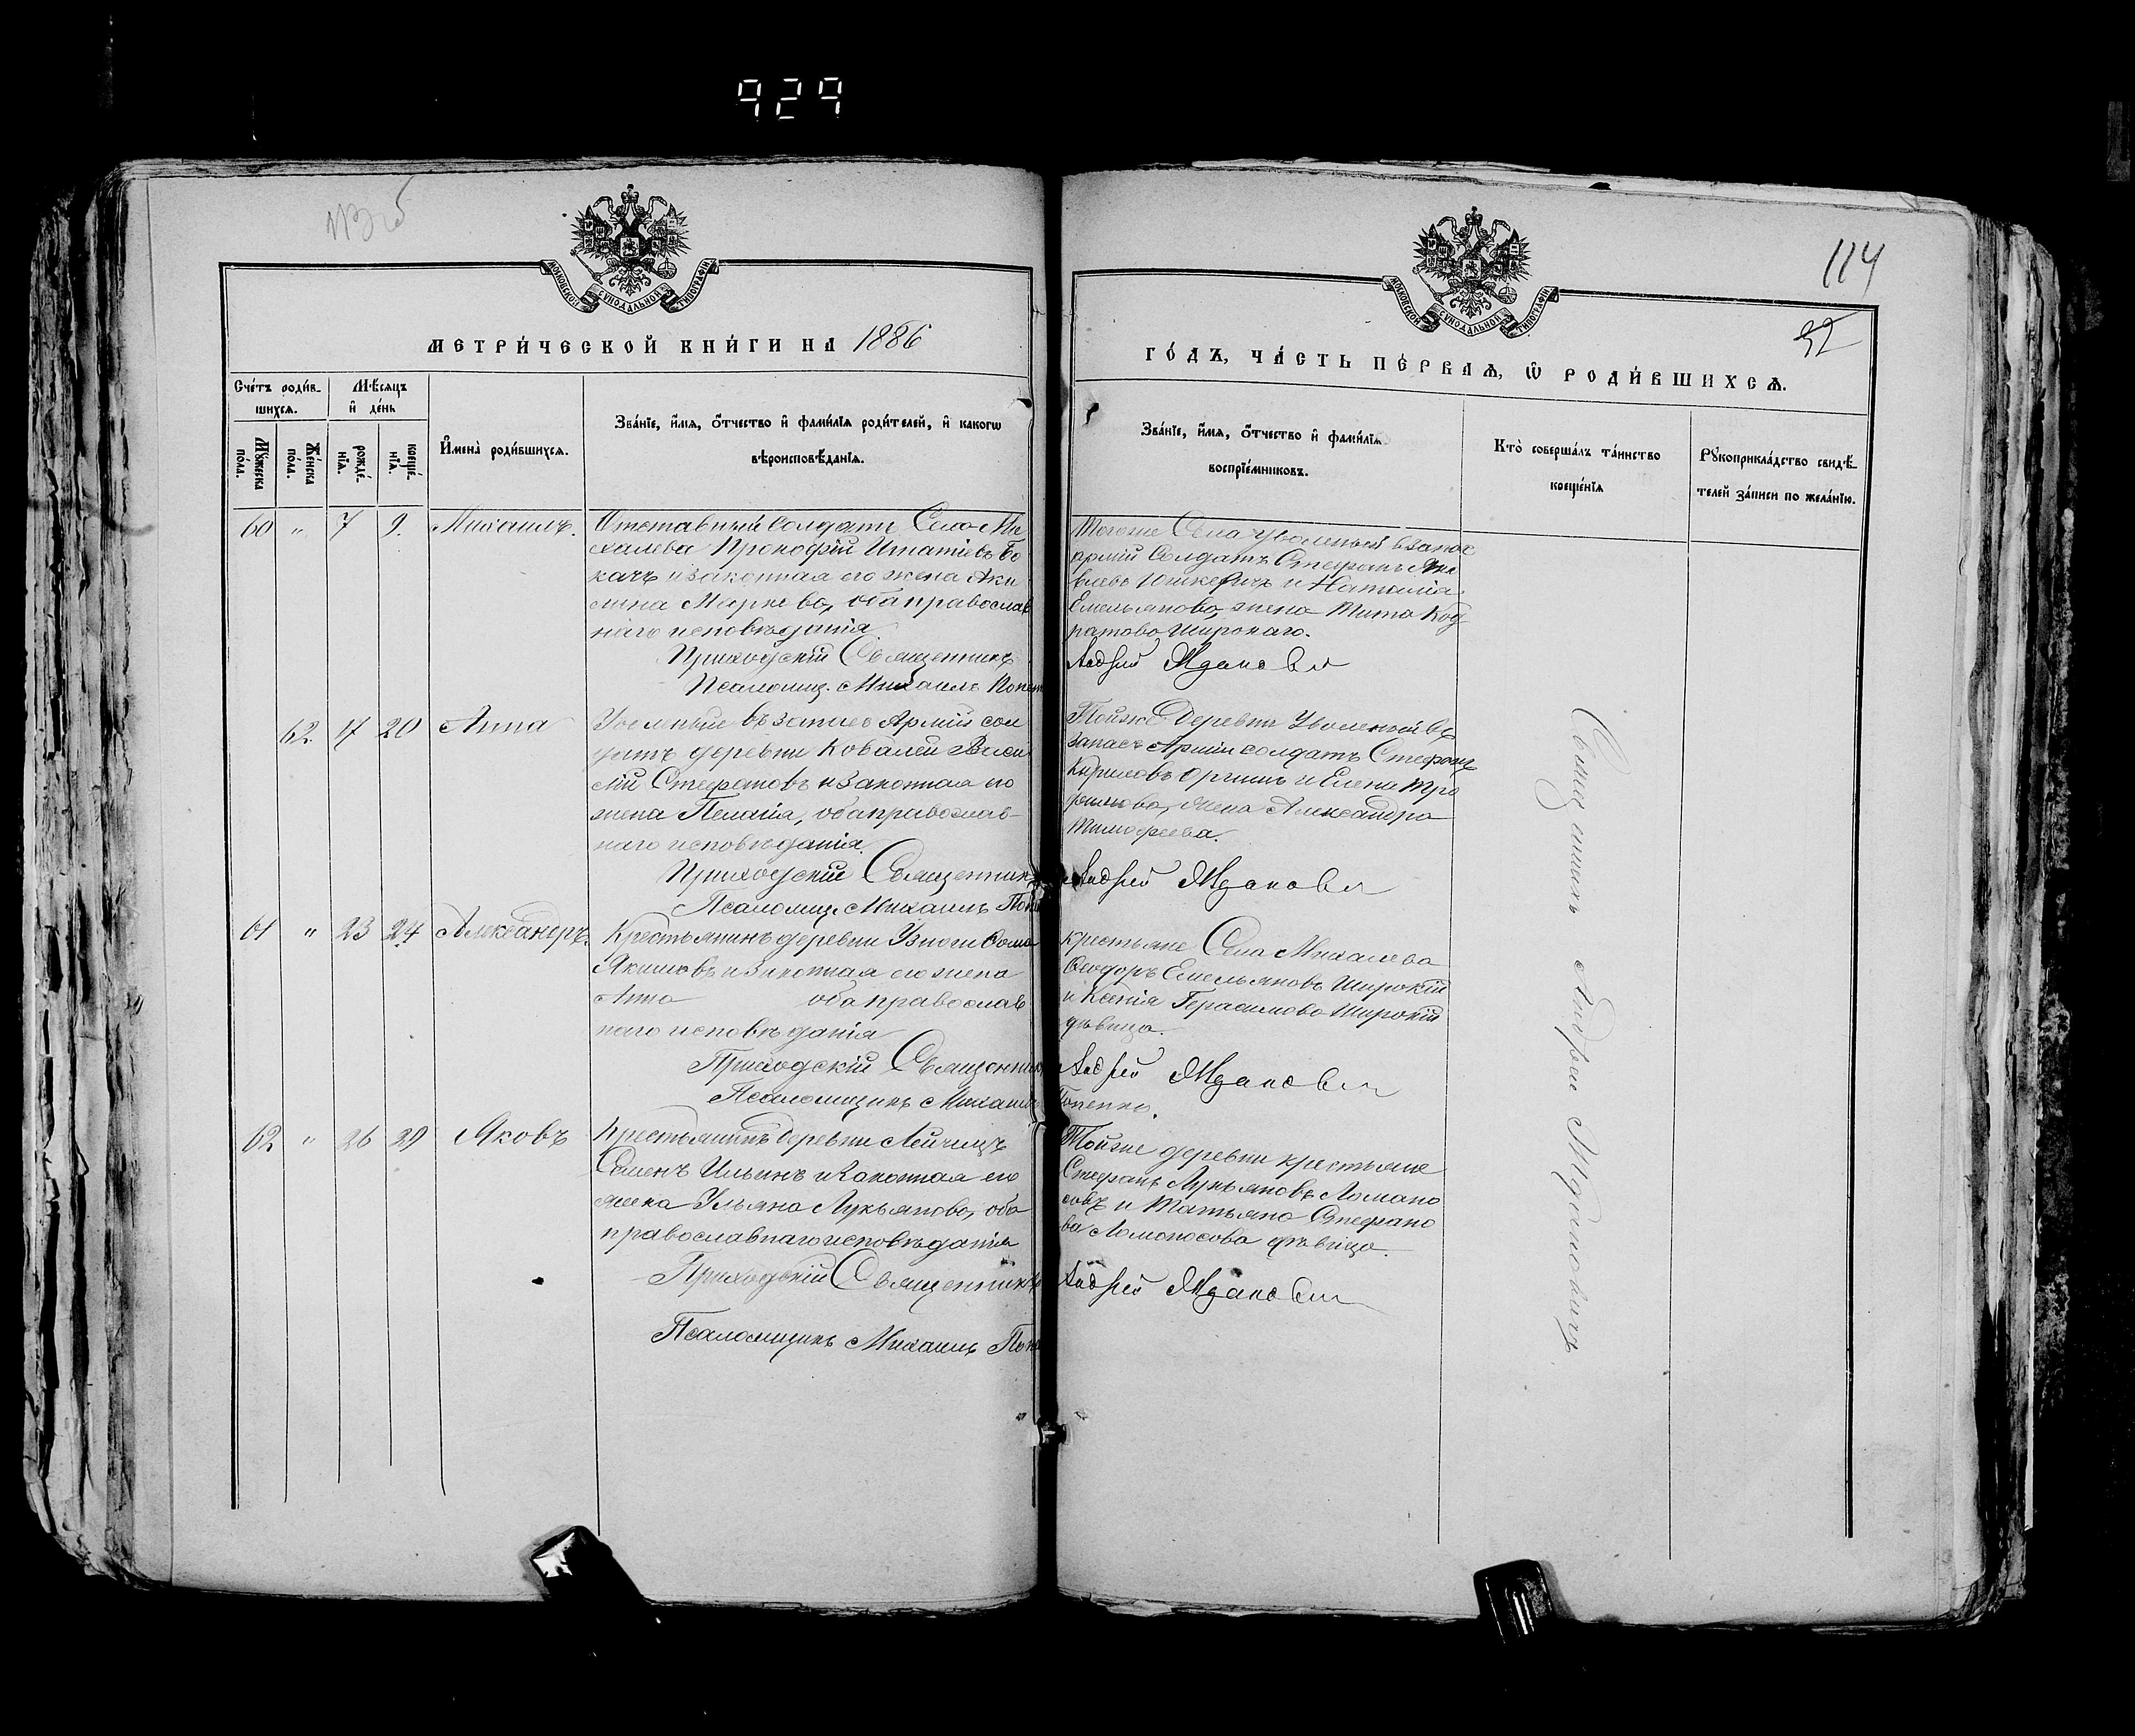 929
114
32
МОСКОВСКОЙ СѴНОДАЛЬНОЙ ТИПОГРАФІИ
МОСКОВСКОЙ СѴНОДАЛЬНОЙ ТИПОГРАФІИ
МЕТРИ́ЧЕСКОЙ КНИ́ГИ НА 1886
ГО́ДЪ, ЧА́СТЬ ПЕ́РВАѦ, Ѽ РОДИ́ВШИХСѦ.
Сче́тъ роди́в-
шихсѧ.
Мѣ́сѧцъ
и҆ де́нь
Мꙋ́жеска
по́ла.
Же́нска
по́ла.
рожде́-
нїѧ.
креще́-
нїѧ.
И҆мена̀ роди́вшихсѧ.
Зва́нїе, и҆́мѧ, ѻ҆́тчество и҆ фами́лїѧ роди́телей, и҆ какогѡ
вѣроисповѣ́данїѧ.
Зва́нїе, и҆́мѧ, ѻ҆́тчество и҆ фами́лїѧ
воспрїе́мниковъ.
Кто̀ соверша́лъ та́инство
креще́нїѧ
Рꙋкоприкла́дство свидѣ́-
телей за́писи по жела́нїю.
60 " 7 9. Михаилъ.
Отставный Солдатъ Села Ми
халева Прокофій Игнатіевъ Бо
качъ и законная его жена Аки
лина Маркова, оба православ
наго исповѣданія
Приходскій Священникъ
Псаломщ. Михаилъ
Тогоже Села уволеный в запас
армій Солдатъ Стефанъ
и Наталія
Емельянова, жена Тита Код
ратова Широкаго.
Андрей Жданови
62. 17 20 Анна
Уволеные въ запасъ Армій сол
датъ деревни Ковалей Васи
лій Стефановъ и законная его
жена Пелагія, оба православ-
наго исповѣданія.
Приходскій Священникъ
Псаломщ. Михаилъ
Тойже Деревни Уволеный въ
запасъ Арміи солдатъ Стефанъ
Кириловъ и Елена Тро
фимова, жена Александра
Тимофеева.
Андрей Жданови
61 " 23 24 Александръ.
Крестьянинъ деревни Узноги Фома
Якимовъ и Законная его жена
Анна оба православ
наго исповѣданія
Приходскій Священникъ
Псаломщикъ Михаилъ
крестьяне Села Михалева
Ѳеодоръ Емельяновъ Широкій
и Ксенія Герасимова Широкій
дѣвица.
Андрей Жданови
Попенко.
62 " 26 29 Яковъ
Крестьянинъ деревни Лейчицъ
Семенъ Ильинъ и Законная его
жена Ульяна Лукьянова, оба
православнаго исповѣданія
Приходскій Священникъ
Псаломщикъ Михаилъ
Тойже деревни крестьяне
Стефанъ Лукьяновъ Ломано
совъ и Татьяна Стефано
ва Ломоносова дѣвица.
Андрей Жданови
Священникъ Андрей Жданович